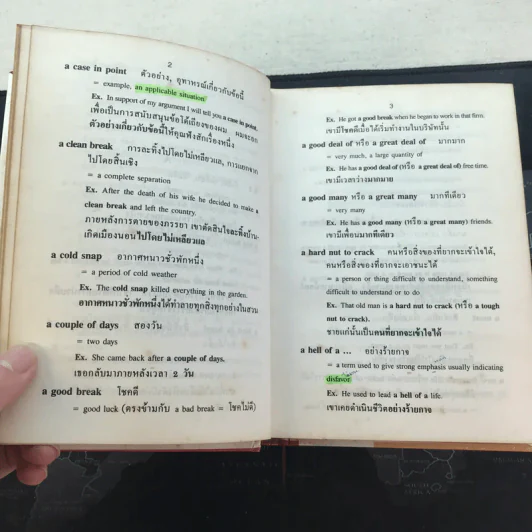 2
a case in point ตัวอย่าง, อุทาหรณ์เกี่ยวกับข้อนี้
= example, an applicable situation
Ex. In support of my argument I will tell you a case in point.
เพื่อเป็นการสนับสนุนข้อโต้เถียงของผม ผมจะยก
ตัวอย่างเกี่ยวกับข้อนี้ให้คุณฟังสักเรื่องหนึ่ง
a clean break การละทิ้งไปโดยไม่เหลียวแล, การแยกจาก
ไปโดยสิ้นเชิง
= a complete separation
Ex. After the death of his wife he decided to make a
clean break and left the country.
ภายหลังการตายของภรรยา เขาตัดสินใจละทิ้งบ้าน-
เกิดเมืองนอนไปโดยไม่เหลียวแล
a cold snap อากาศหนาวชั่วพักหนึ่ง
= a period of cold weather
Ex. The cold snap killed everything in the garden.
อากาศหนาวชั่วพักหนึ่งได้ทำลายทุกสิ่งทุกอย่างในสวน
a couple of days สองวัน
= two days
Ex. She came back after a couple of days.
เธอกลับมาภายหลังเวลา 2 วัน
a good break โชคดี
= good luck (ตรงข้ามกับ a bad break = โชคไม่ดี)
3
Ex. He got a good break when he began to work in that firm.
เขามีโชคดีเมื่อได้เริ่มทำงานในบริษัทนั้น
a good deal of หรือ a great deal of มากมาก
= very much, a large quantity of
Ex. He has a good deal of (หรือ a great deal of) free time.
เขามีเวลาว่างมากมาย
a good many หรือ a great many มากทีเดียว
= very many
Ex. He has a good many (หรือ a great many) friends.
เขามีเพื่อนมากทีเดียว
a hard nut to crack คนหรือสิ่งของที่ยากจะเข้าใจได้,
คนหรือสิ่งของที่ยากจะเอาชนะได้
= a person or thing difficult to understand, something
difficult to understand or to do.
Ex. That old man is a hard nut to crack (หรือ a tough
nut to crack).
ชายแก่นั้นเป็นคนที่ยากจะเข้าใจได้
a hell of a ... อย่างร้ายกาจ
= a term used to give strong emphasis usually indicating
disfavor
Ex. He used to lead a hell of a life.
เขาเคยดำเนินชีวิตอย่างร้ายกาจ